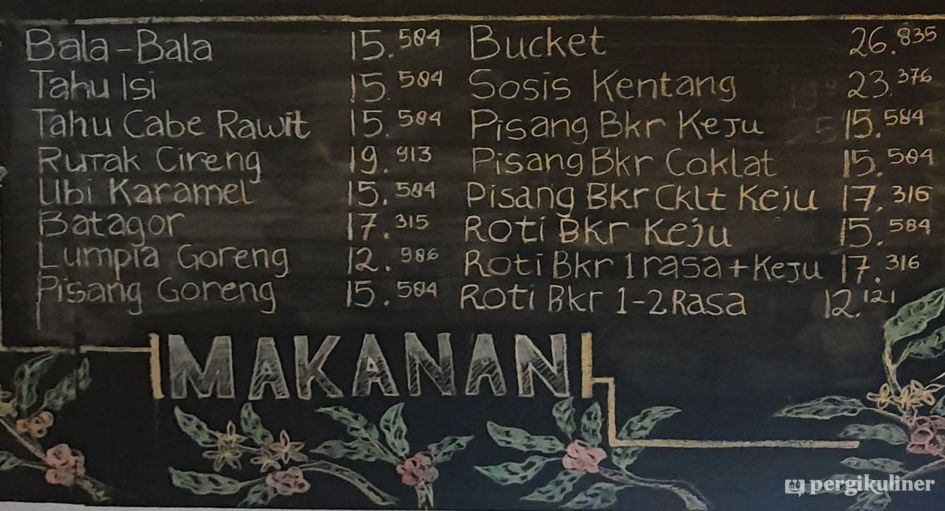 Bala-Bala 15.584
Tahu Isi 15.584
Tahu Cabe Rawit 15.584
Rujak Cireng 19.913
Ubi Karamel 15.584
Batagor 17.315
Lumpia Goreng 12.986
Pisang Goreng 15.584
Bucket 26.835
Sosis Kentang 23.376
Pisang Bkr Keju 15.584
Pisang Bkr Coklat 15.584
Pisang Bkr Cklt Keju 17.316
Roti Bkr Keju 15.584
Roti Bkr 1 rasa + Keju 17.316
Roti Bkr 1-2 Rasa 12.121
MAKANAN
pergikuliner